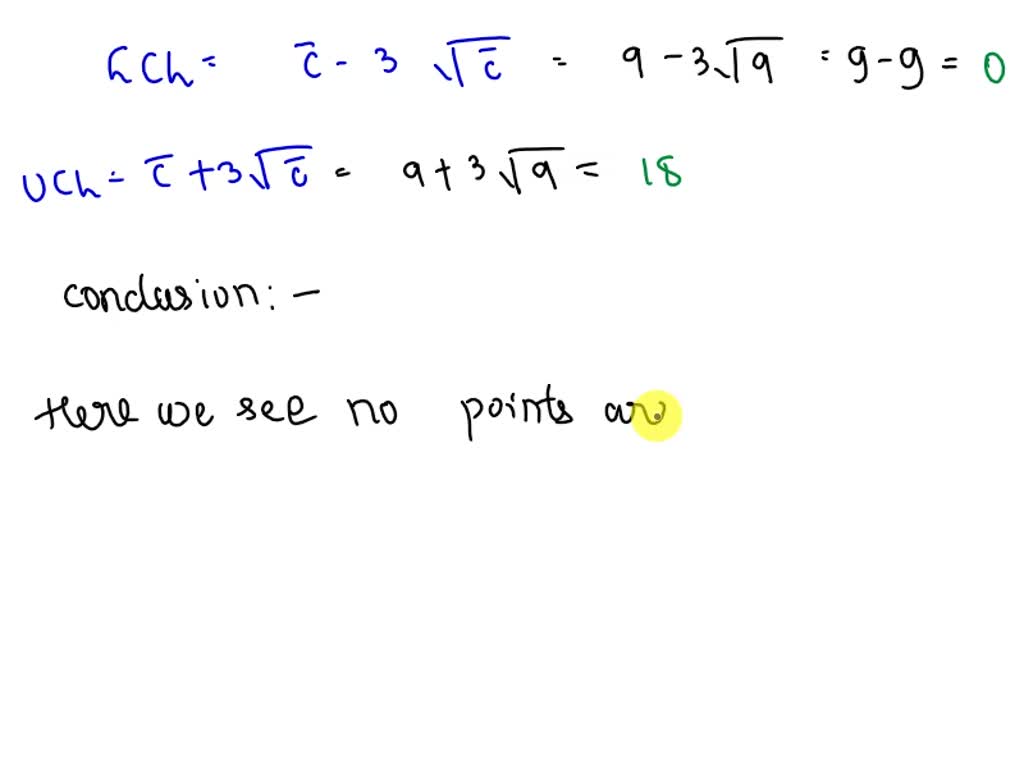 LCL = c̄ - 3 √c̄ = 9 - 3√9 = 9 - 9 = 0
UCL = c̄ + 3√c̄ = 9 + 3√9 = 18
conclusion: -
Here we see no points are